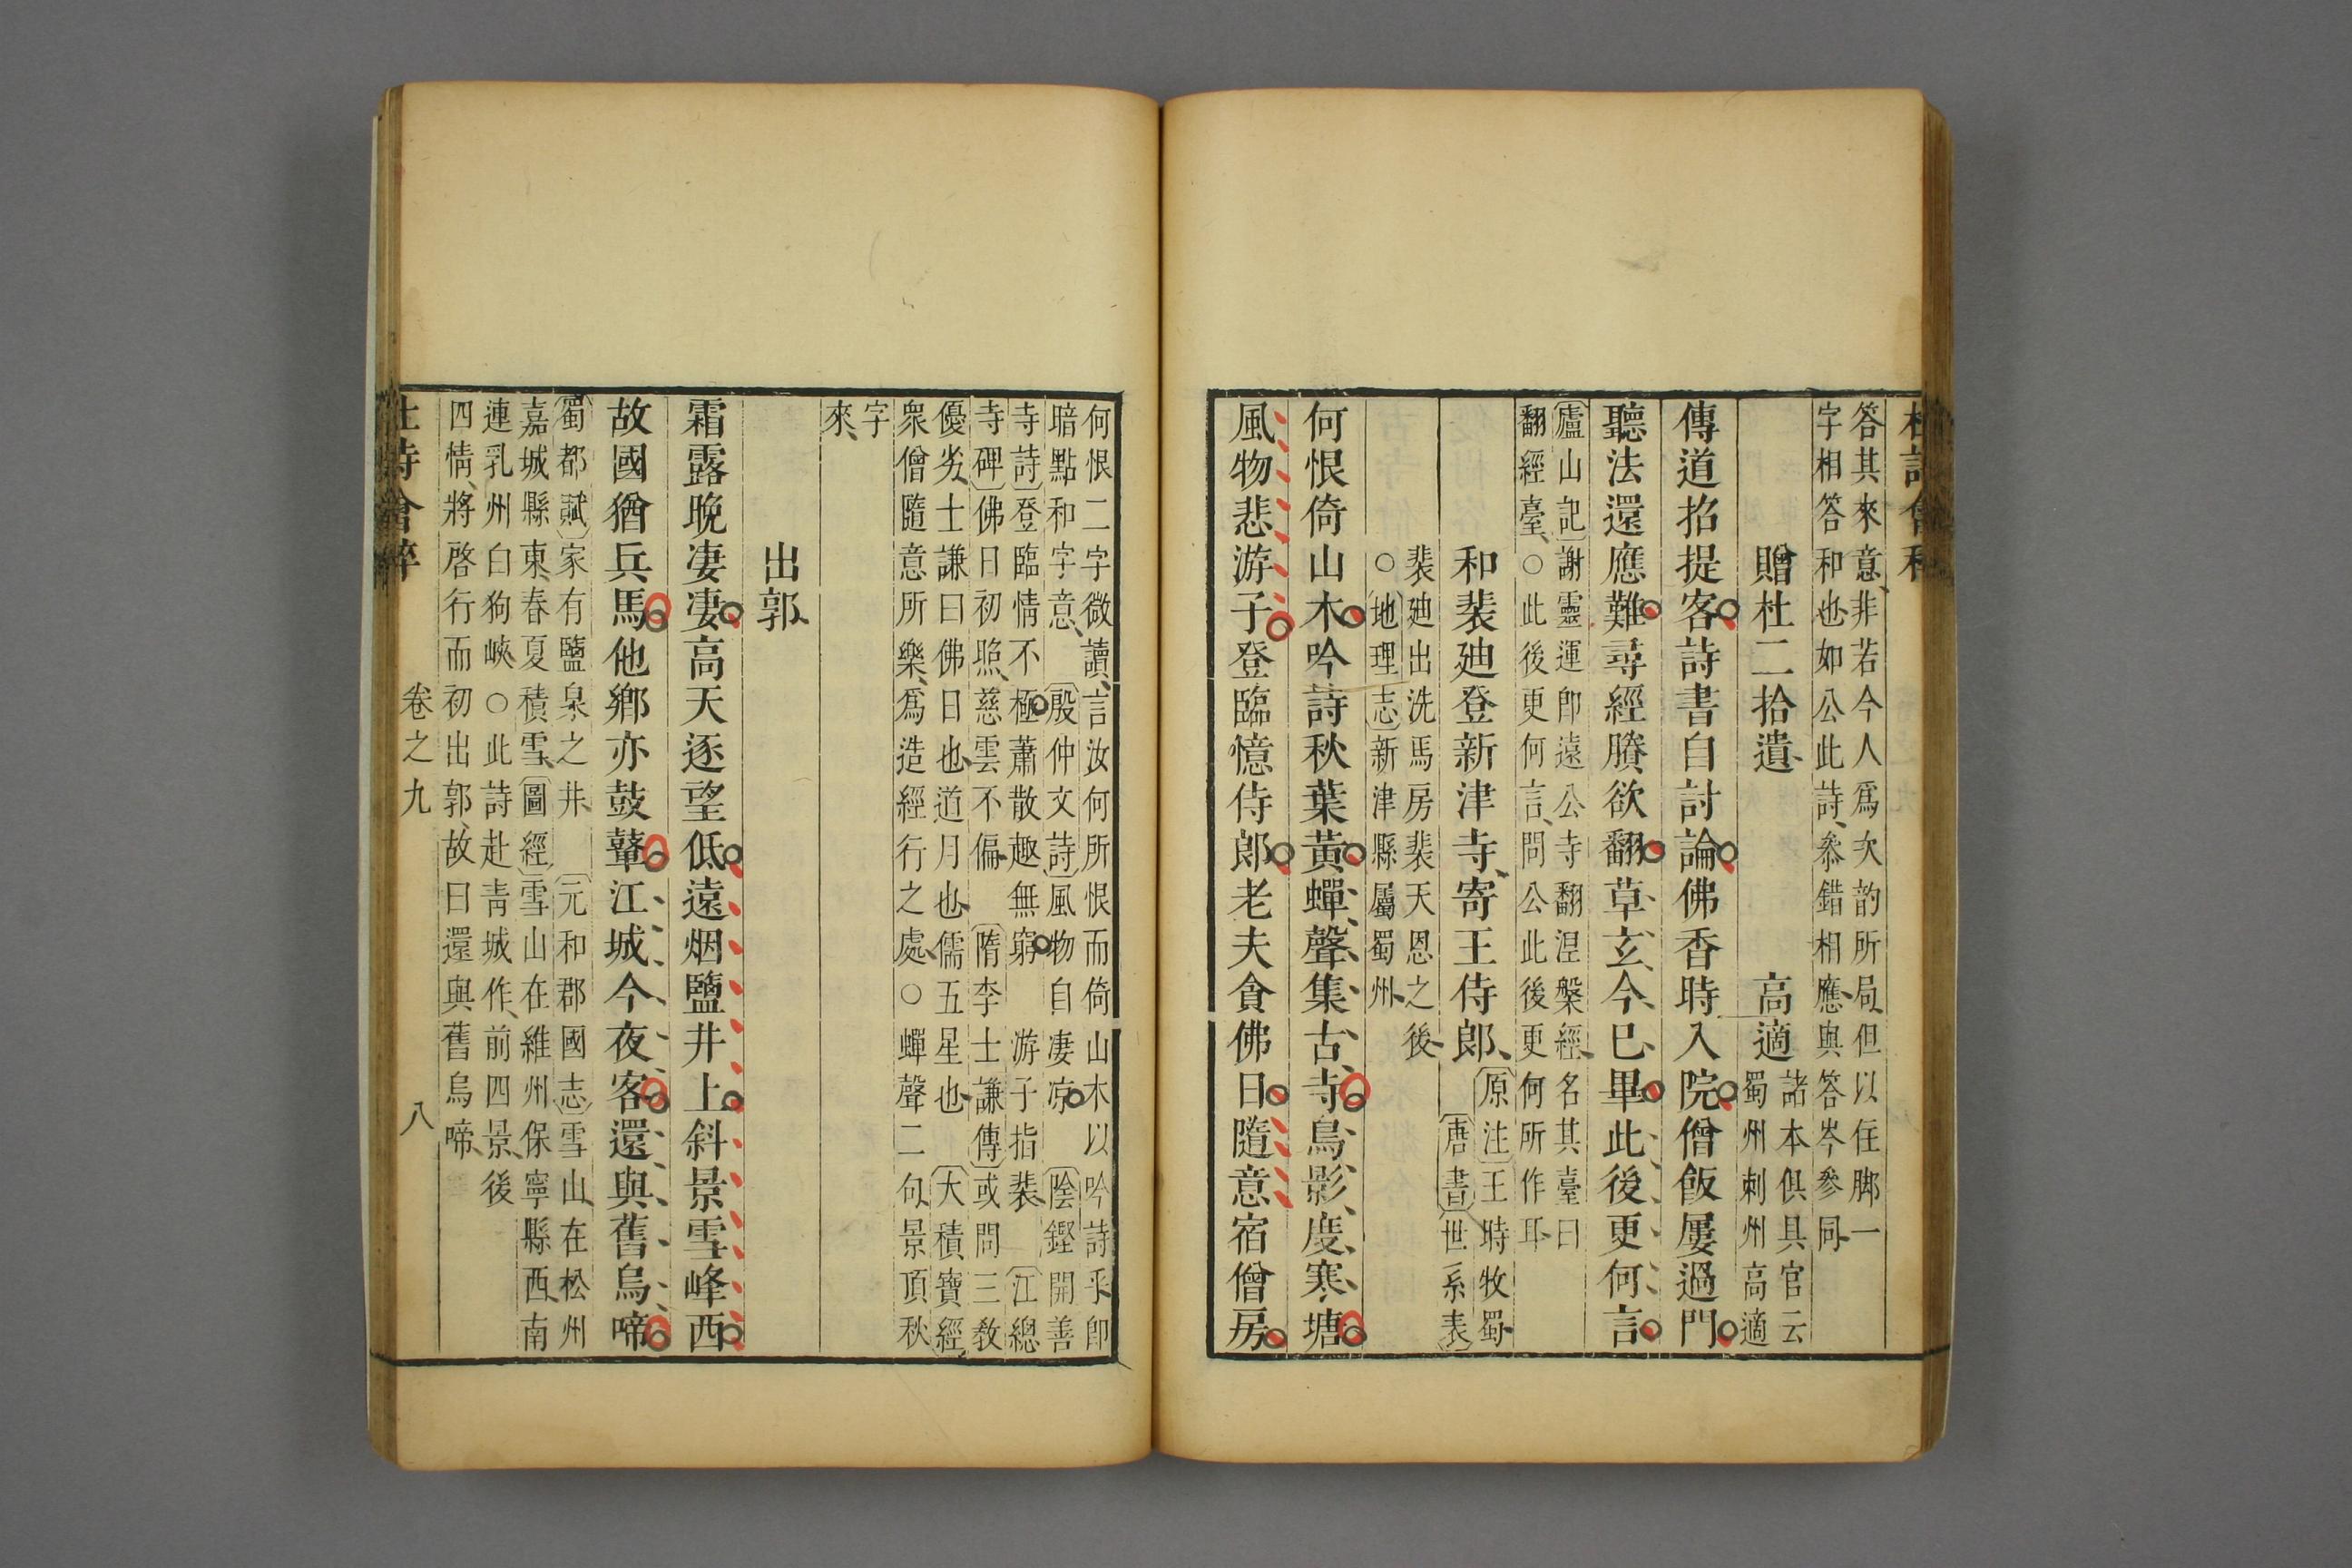 杜詩會稡
答其來意、非若今人爲次韵所局、但以住脚一
字相答和也、如公此詩、叅錯相應、與答岑參同、
贈杜二拾遺、高適
諸本俱具官云
蜀州刺州高適
傳道招提客詩書自討論佛香時入院僧飯屢過門
聽法還應難尋經賸欲翻草玄今巳畢此後更何言
〔廬山記〕謝靈運卽遠公寺翻涅槃經、名其臺曰
翻經臺、○此後更何言、問公此後更何所作耳、
和裴廸登新津寺、寄王侍郎、
〔原注〕王時牧蜀、
〔唐書〕世系表〕
裴廸出洗馬房裴天恩之後、
○〔地理志〕新津縣屬蜀州、
何恨倚山木吟詩秋葉黃蟬聲集古寺鳥影度寒塘
風物悲游子登臨憶侍郎老夫貪佛日隨意宿僧房
何恨二字微讀、言汝何所恨而倚山木以吟詩乎、卽
暗點和字意、〔殷仲文詩〕風物自凄凉 〔陰鏗開善
寺詩〕登臨情不極蕭散趣無窮 游子指裴、〔江總
寺碑〕佛日初照、慈雲不偏、〔隋李士謙傳〕或問三敎
優劣、士謙曰佛日也、道月也、儒五星也、〔大積寶經〕
衆僧隨意所樂、爲造經行之處、○蟬聲二句、景頂秋
字
來、
出郭、
霜露晩凄凄高天逐望低遠烟鹽井上斜景雪峰西
故國猶兵馬他鄉亦鼓鼙江城今夜客還與舊烏啼
〔蜀都賦〕家有鹽泉之井、〔元和郡國志〕雪山、在松州
嘉城縣東、春夏積雪、〔圖經〕雪山在維州保寧縣西、南
連乳州白狗峽、○此詩赴靑城作、前四景、後
四情、將啓行而初出郭、故曰還與舊烏啼、
杜詩會稡 卷之九 八